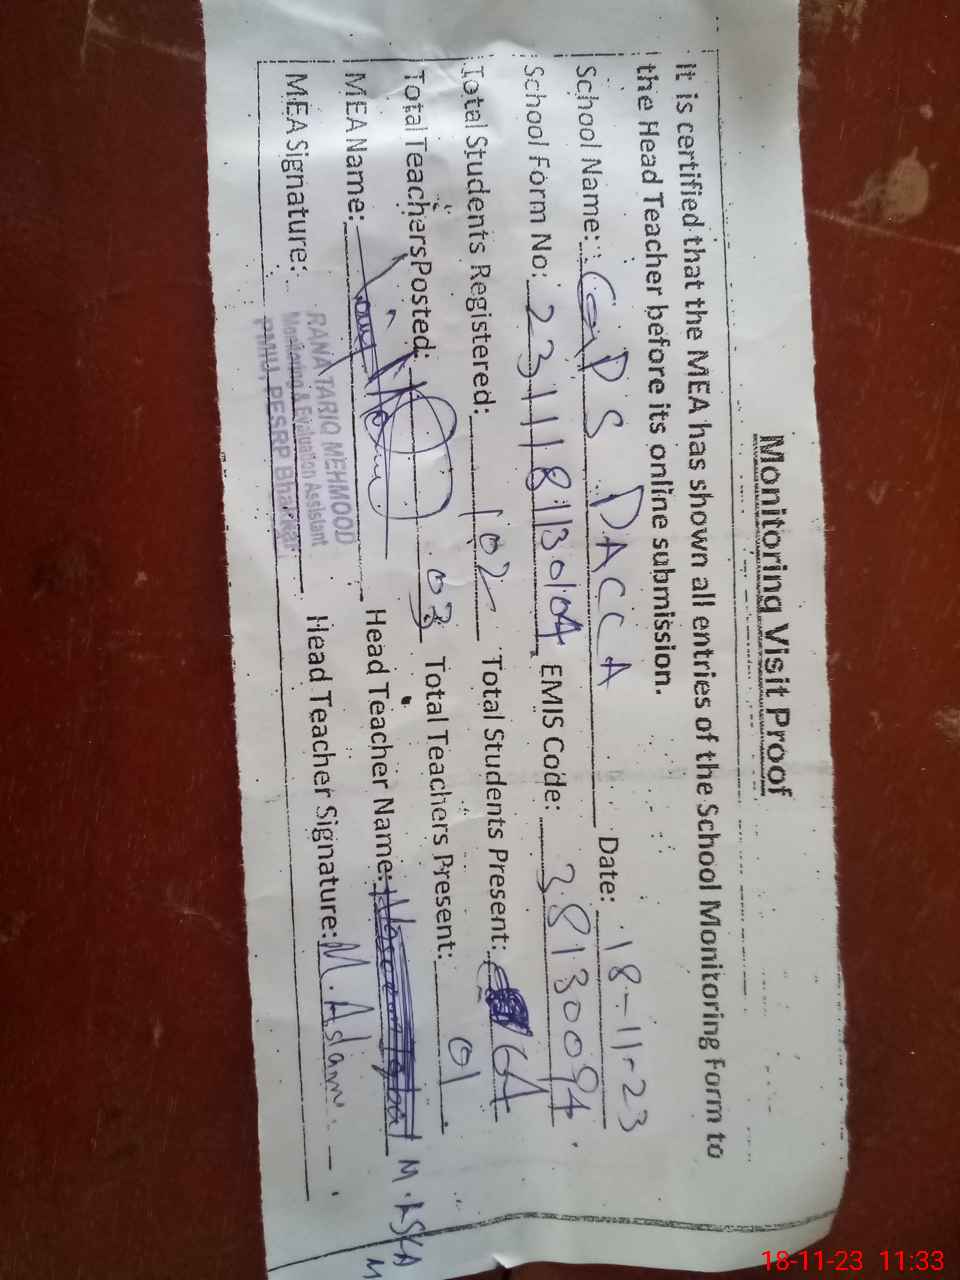 Monitoring Visit Proof
It is certified that the MEA has shown all entries of the School Monitoring Form to
the Head Teacher before its online submission.
School Name: GPS DACCA Date: 18-11-23
School Form No: 2311181130104 EMIS Code: 38130094
Total Students Registered: 102 Total Students Present: 64
Total Teachers Posted: 03 Total Teachers Present: 01
MEA Name: Head Teacher Name: M. ASLAM
MEA Signature: Head Teacher Signature: M. Aslam
RANA TARIQ MEHMOOD
Monitoring & Evaluation Assistant
PMIU, PESRP Bhakkar
18-11-23 11:33